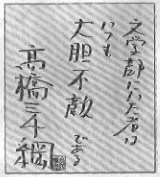 文学部に入た者は
いつも
大胆不敵である
高橋三千綱